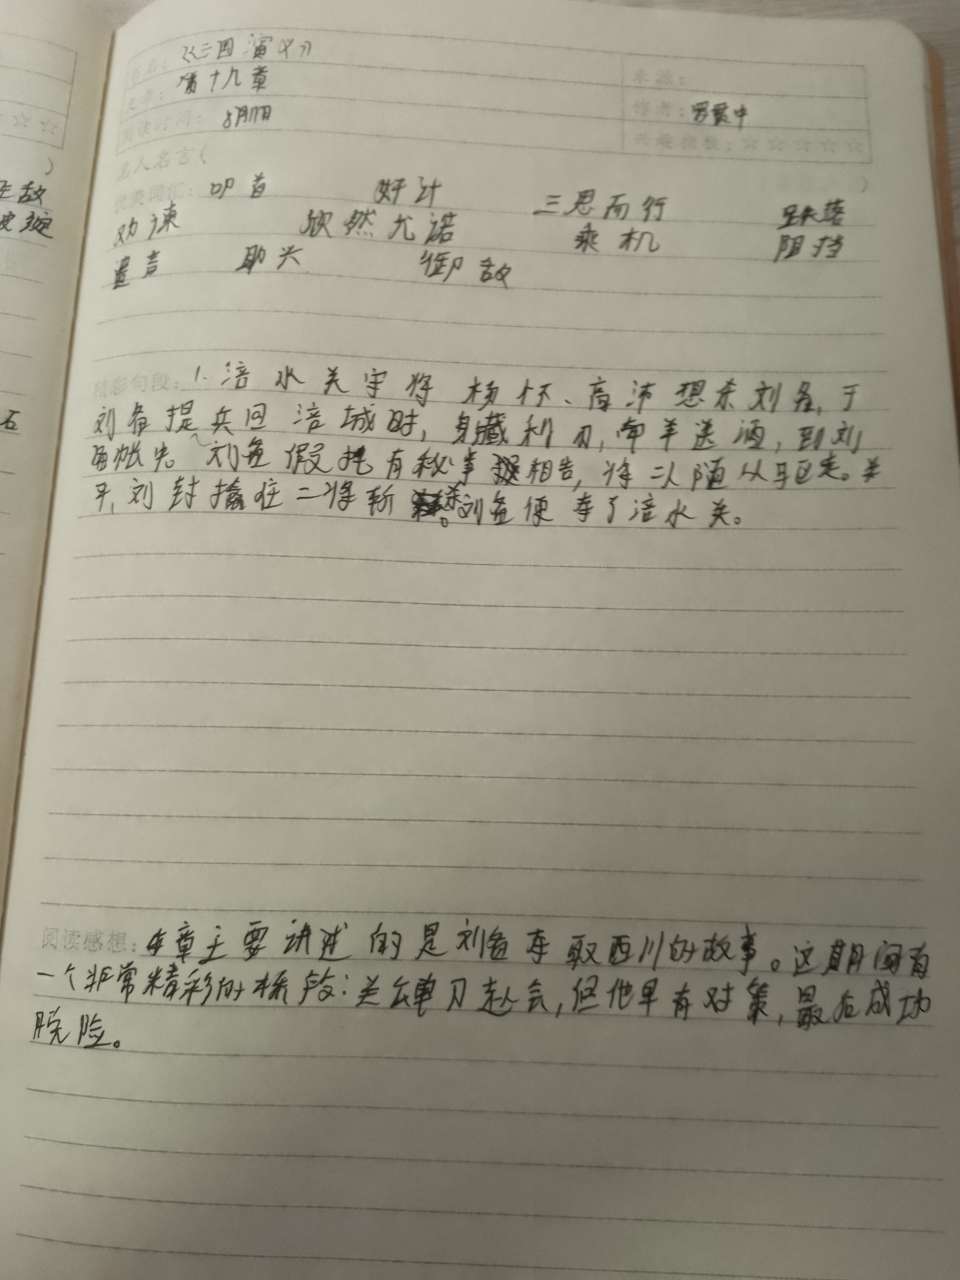 《三国演义》
第十九章
来源：
作者：罗贯中
阅读时间：8月17日
名人名言（
优美词汇：叩首 奸计 三思而行
劝谏 欣然允诺 乘机 阻挡
助兴 御敌
精彩句段：1. 涪水关守将杨怀、高沛想杀刘备，于
刘备提兵回涪城时，身藏利刃，牵羊送酒，到刘
备帐先 刘备假托有秘事相告，将二人随从驱走。关
平，刘封擒住二将斩杀。刘备便夺了涪水关。
阅读感想：本章主要讲述的是刘备夺取西川的故事。这期间有
一个非常精彩的桥段：关公单刀赴会，但他早有对策，最后成功
脱险。